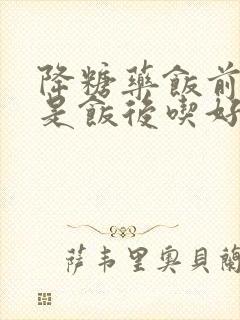 降糖藥飯前
是飯後喫好
萨韦里奥貝蘭